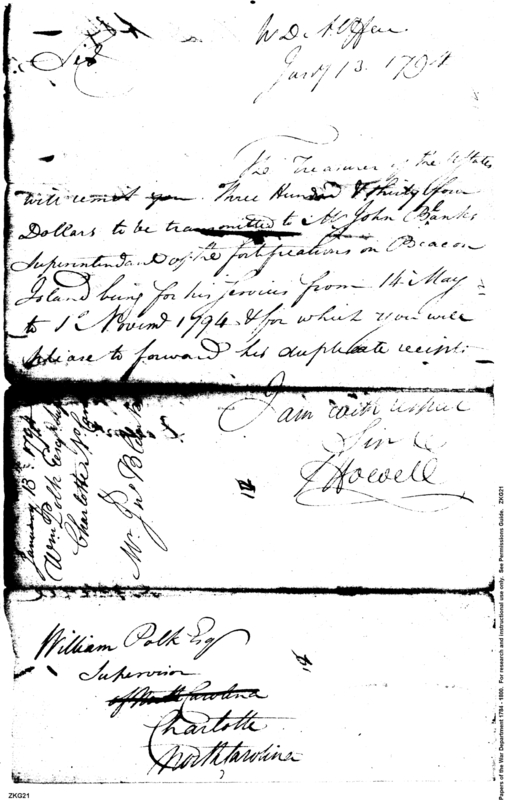 W D. Office
Jany 13. 1794
Sir
The Treasurer of the U States
will remit you Three Hundred & thirty four
Dollars to be transmitted to Mr John Banks
Superintendant of the fortifications on Beacon
Island being for his services from 14 May
to 1st Novem 1794 & for which you will
please to forward his duplicate receipt.
I am with respect
Sir &c
J Howell
January 13th 1794
Wm Polk Esqr
Charlotte No Car
Mr. Jno B
William Polk Esq
Supervisor
of North Carolina
Charlotte
North Carolina
ZKG21
Papers of the War Department 1784 - 1800. For research and instructional use only. See Permissions Guide. ZKG21